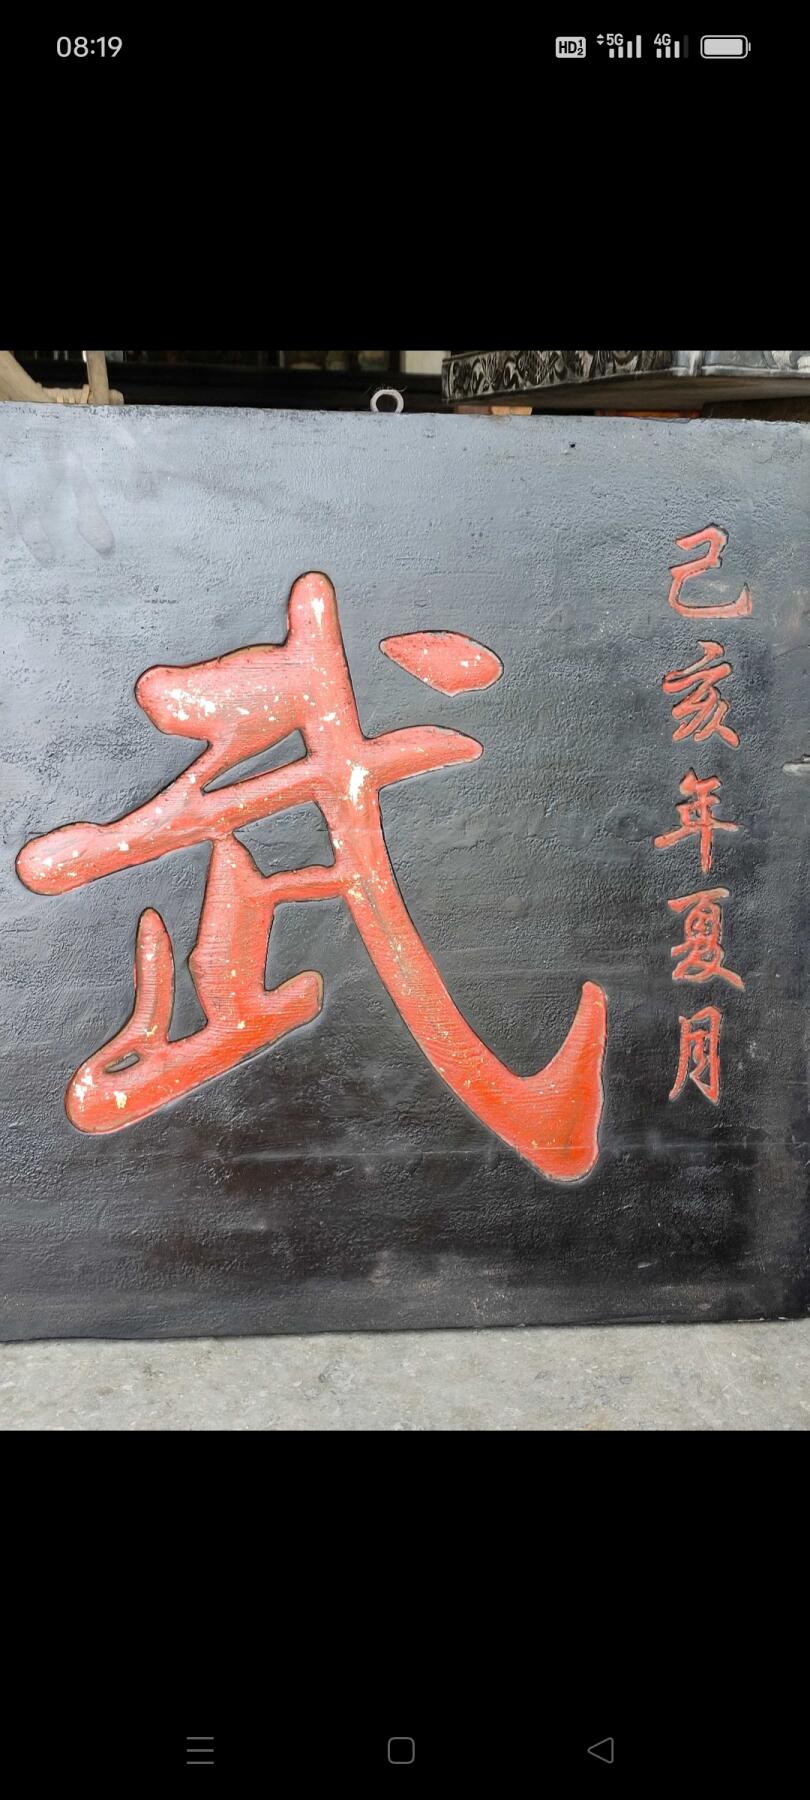 08:19
HD 1 2
5G
4G
己亥年夏月
武